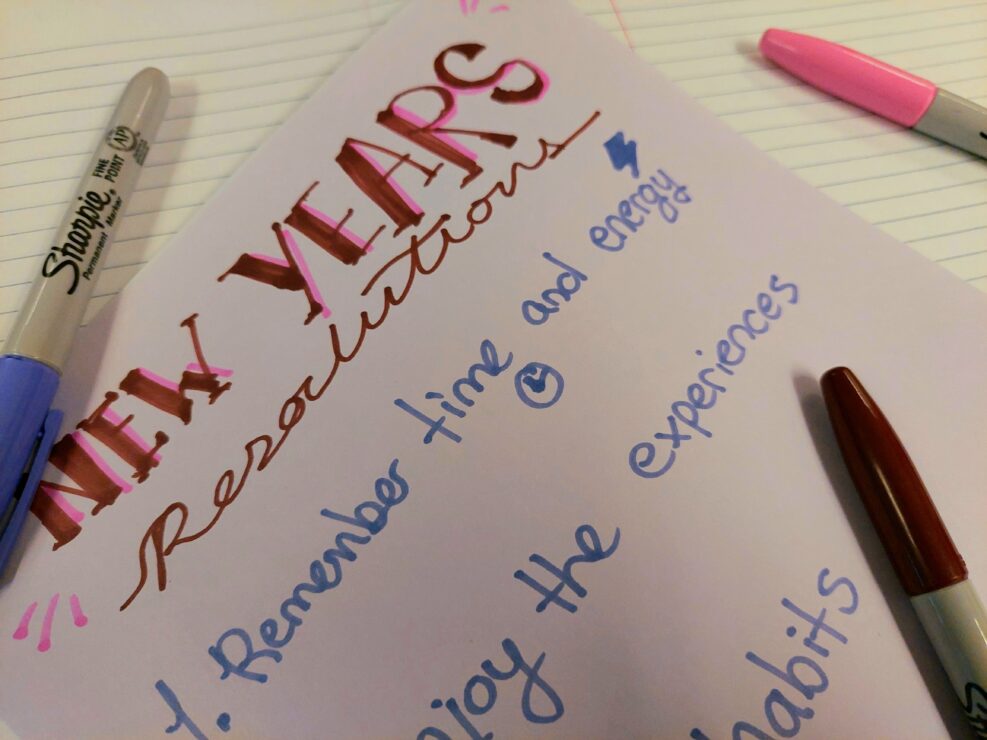 NEW YEARS
Resolutions
1. Remember time and energy
njoy the experiences
habits
Sharpie®
FINE POINT
AP
Permanent Marker